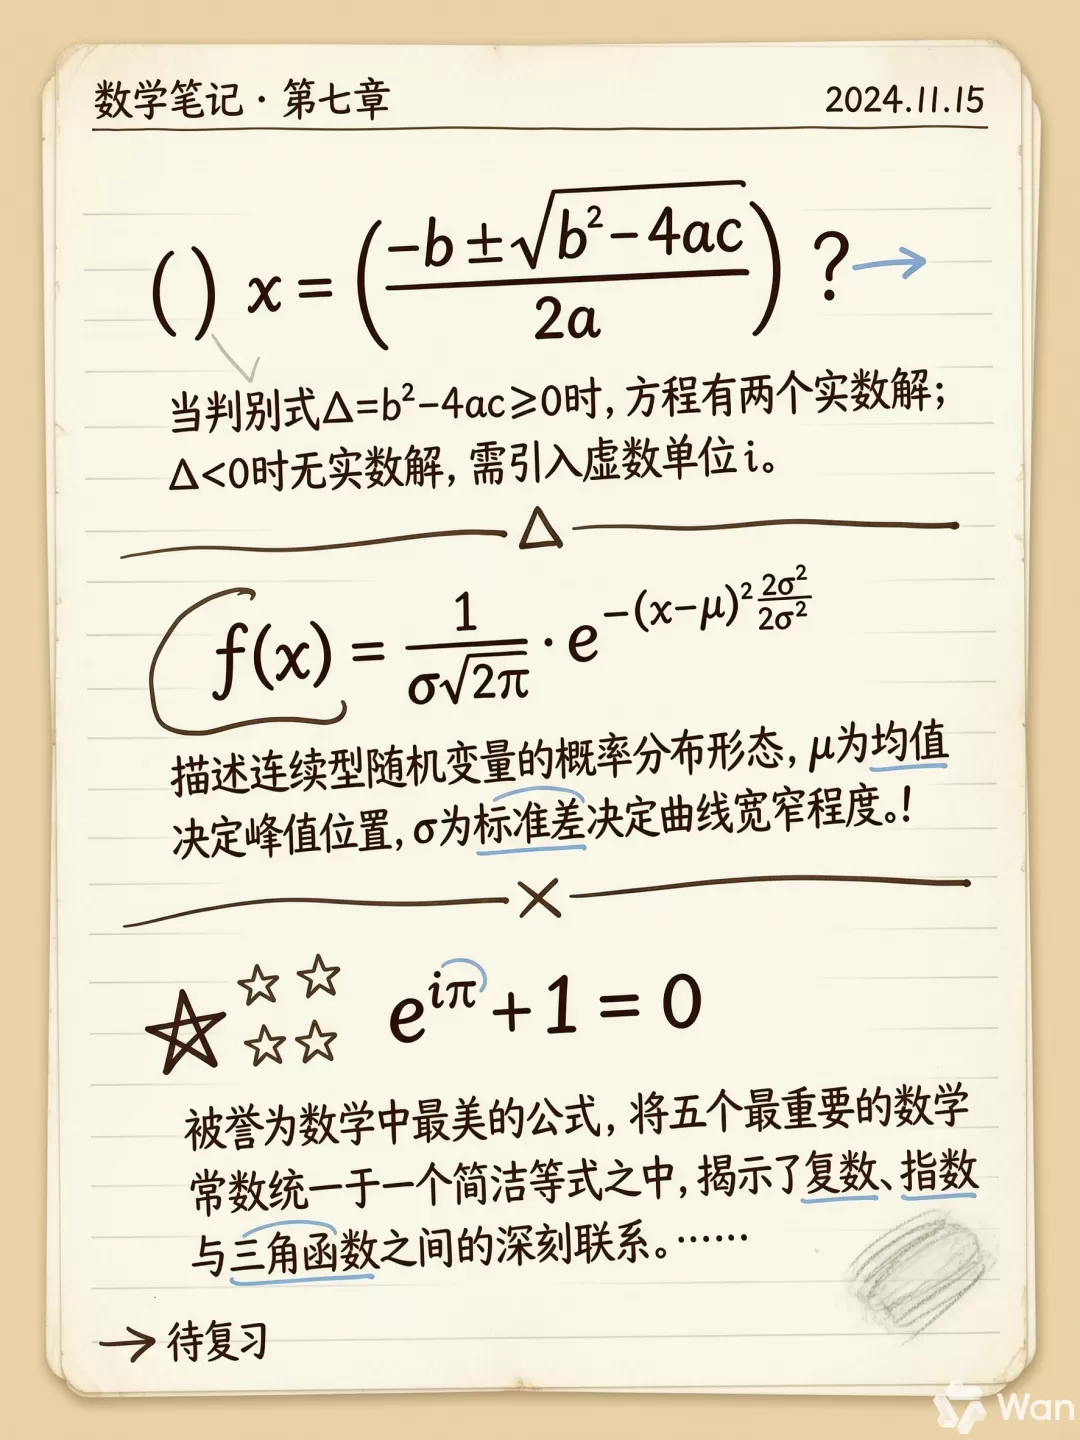 数学笔记·第七章 2024.11.15
( ) x = ( (-b ± √(b²-4ac)) / 2a ) ? →
当判别式Δ=b²-4ac≥0时,方程有两个实数解;
Δ<0时无实数解,需引入虚数单位i。
△
f(x) = 1/(σ√(2π)) · e^(-(x-μ)² 2σ²/2σ²)
描述连续型随机变量的概率分布形态,μ为均值
决定峰值位置,σ为标准差决定曲线宽窄程度。!
×
e^(iπ) + 1 = 0
被誉为数学中最美的公式,将五个最重要的数学
常数统一于一个简洁等式之中,揭示了复数、指数
与三角函数之间的深刻联系。……
→ 待复习
Wan